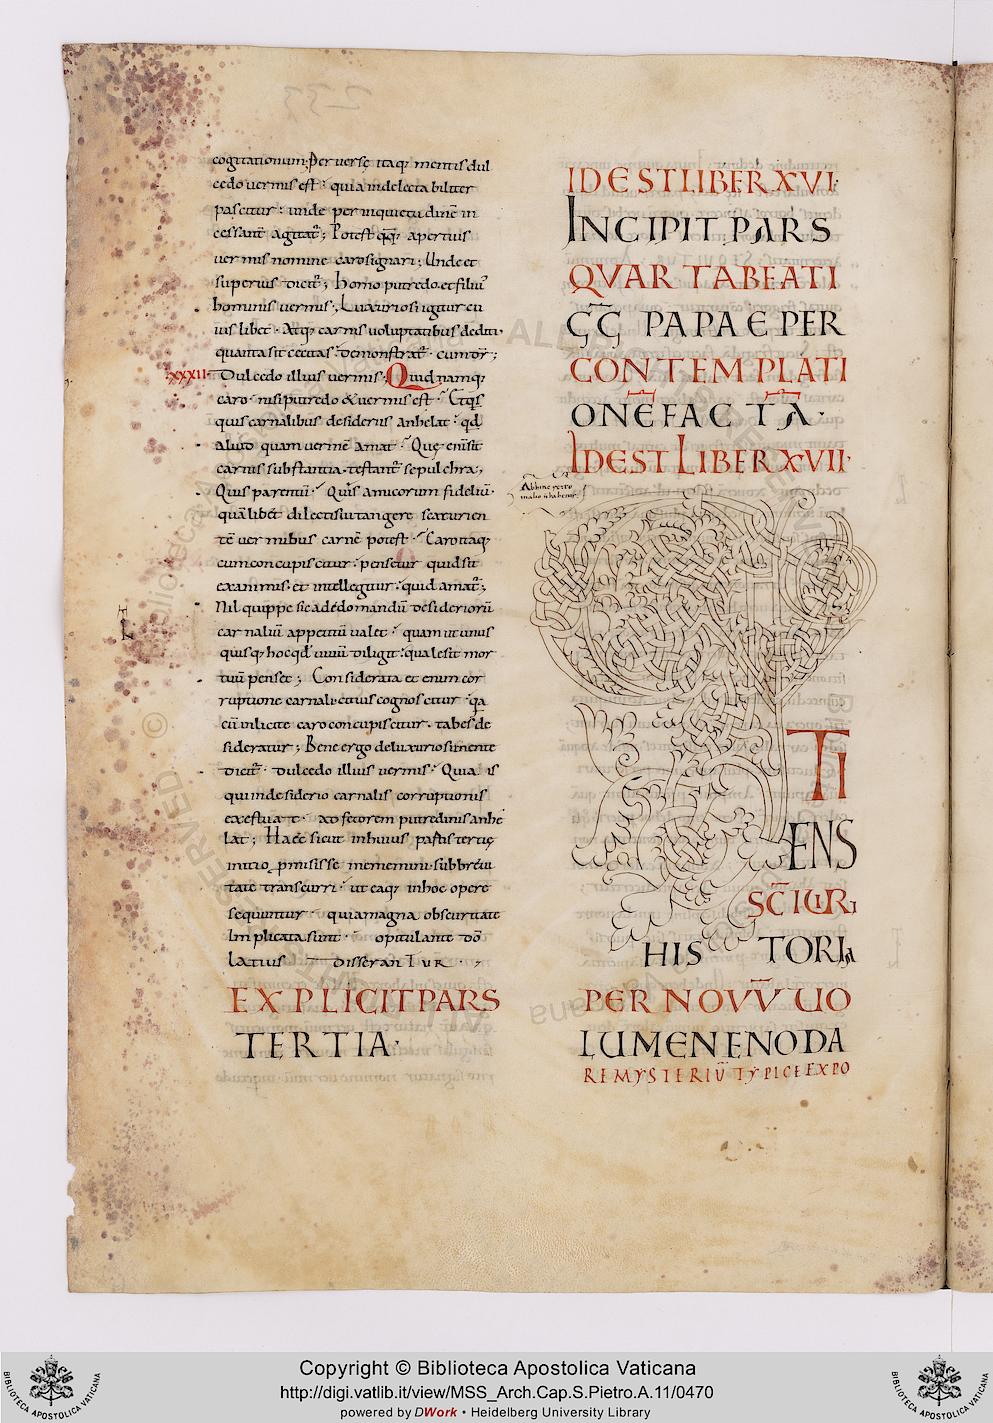 cogitationum; Perverse itaq; mentis dul
cedo vermis est; quia indelectabiliter
pascitur; unde per inquietudinē in
cessant̄ agitat̄; Potest qq; apertius
vermis nomine caro signari; Unde et
superius dicit̄; homo putredo et filiu
hominis vermis; Luxuriosi igitur cu
ius libet. Atq; carnis voluptatibus dediti
quanta sit cecitas demonstrat̄. cum dr̄;
lxxxii Dulcedo illius vermis; Quid namq;
caro nisi putredo & vermis est. Et qs
quis carnalibus desideriis anhelat. qd
aliud quam vermē amat. Que eni sit
carnis substantia testant̄ sepulchra;
Quis parentū. Quis amicorum fideliū.
quālibet dilectissimi tangere scaturien
tē vermibus carnē potest. Caro itaq;
cum concupiscitur. pensetur quid sit
exanimis. et intellegitur. quid amat̄;
Nil quippe sic ad edomandū desideriorū
carnaliū appetitū valet. quam ut unus
quisq; hoc qd vivū diligit. quale sit mor
tuū penset; Considerata et enim cor
ruptione carnali. citius cognoscitur. qa
cū inlicite caro concupiscitur. tabes de
sideratur; Bene ergo de luxuriosi mente
dicit̄. dulcedo illius vermis. Quia is
qui in desiderio carnalis corruptionis
exestuat. ad fetorem putredinis anhe
lat; Haec sicut in huius partis tertiȩ
initio promisisse me memini. sub brevi
tate transcurri. ut ea q; in hoc opere
sequuntur. quia magna obscuritate
Implicata sunt. opitulante dō
latius disserantur.
EXPLICIT PARS
TERTIA.
IDEST LIBER XVI.
INCIPIT PARS
QVARTA BEATI
GG PAPAE PER
CONTEMPLATI
ONE FACTA.
IDEST LIBER XVII.
Abhinc
malis habemus
TI
ENS
SC̄IUR
HIS TORIA
PER NOVV̄ UO
LUMEN ENODA
RE MYSTERIŪ TYPICE EXPO
Copyright © Biblioteca Apostolica Vaticana
http://digi.vatlib.it/view/MSS_Arch.Cap.S.Pietro.A.11/0470
powered by DWork • Heidelberg University Library
BIBLIOTECA APOSTOLICA VATICANA
BIBLIOTECA APOSTOLICA VATICANA